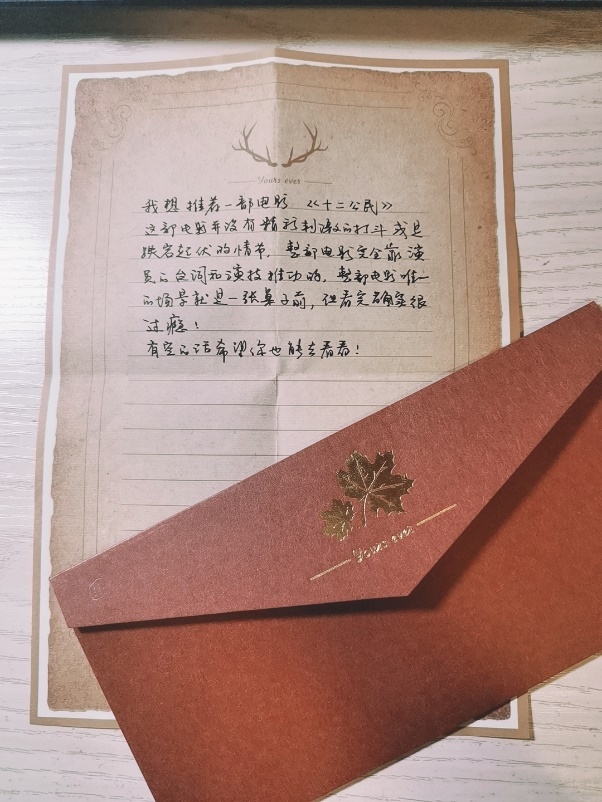 Yours ever
我想推荐一部电影 《十二公民》
这部电影并没有精彩刺激的打斗或是
跌宕起伏的情节，整部电影完全靠演
员的台词和演技推动的，整部电影唯一
的场景就是一张桌子前，但看完确实很
过瘾！
有空的话希望你也能去看看！
Yours ever